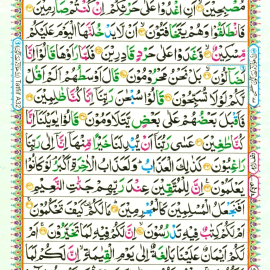 مُصْبِحِيْنَ اَنِ اغْدُوْا عَلٰى حَرْثِكُمْ اِنْ كُنْتُمْ صٰرِمِيْنَ
فَانْطَلَقُوْا وَهُمْ يَتَخَافَتُوْنَ اَنْ لَّا يَدْخُلَنَّهَا الْيَوْمَ عَلَيْكُمْ
مِّسْكِيْنٌ وَّغَدَوْا عَلٰى حَرْدٍ قٰدِرِيْنَ فَلَمَّا رَاَوْهَا قَالُوْۤا اِنَّا
لَضَآلُّوْنَ بَلْ نَحْنُ مَحْرُوْمُوْنَ قَالَ اَوْسَطُهُمْ اَلَمْ اَقُلْ
لَّكُمْ لَوْلَا تُسَبِّحُوْنَ قَالُوْا سُبْحٰنَ رَبِّنَاۤ اِنَّا كُنَّا ظٰلِمِيْنَ
فَاَقْبَلَ بَعْضُهُمْ عَلٰى بَعْضٍ يَّتَلَاوَمُوْنَ قَالُوْا يٰوَيْلَنَاۤ اِنَّا
كُنَّا طٰغِيْنَ عَسٰى رَبُّنَاۤ اَنْ يُّبْدِلَنَا خَيْرًا مِّنْهَاۤ اِنَّاۤ اِلٰى رَبِّنَا
رٰغِبُوْنَ كَذٰلِكَ الْعَذَابُ وَلَعَذَابُ الْاٰخِرَةِ اَكْبَرُ لَوْ كَانُوْا
يَعْلَمُوْنَ اِنَّ لِلْمُتَّقِيْنَ عِنْدَ رَبِّهِمْ جَنّٰتِ النَّعِيْمِ
اَفَنَجْعَلُ الْمُسْلِمِيْنَ كَالْمُجْرِمِيْنَ مَا لَكُمْ كَيْفَ تَحْكُمُوْنَ
اَمْ لَكُمْ كِتٰبٌ فِيْهِ تَدْرُسُوْنَ اِنَّ لَكُمْ فِيْهِ لَمَا تَخَيَّرُوْنَ اَمْ
لَكُمْ اَيْمَانٌ عَلَيْنَا بَالِغَةٌ اِلٰى يَوْمِ الْقِيٰمَةِ اِنَّ لَكُمْ لَمَا